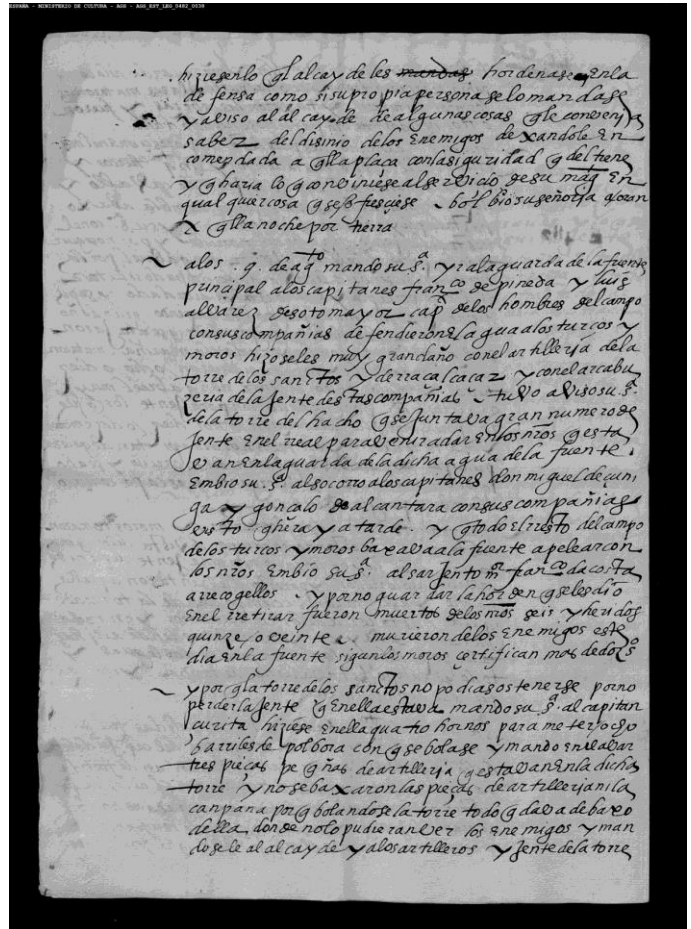 ESPAÑA - MINISTERIO DE CULTURA - AGS - AGS_EST_LEG_0482_0038
hiziesenlo q̃l alcayde les mandas hordenase enla
defensa como si su propia persona se lo mandase
y aviso al alcayde de algunas cosas q̃ le convenja
saber del disinio delos enemigos dexandole en
comendada aq̃lla plaça con la siguridad q̃ del tiene
y q̃ haria lo q̃ conviniese al servicio de su mag̃ en
qual quier cosa q̃ se ofresciese bolbio su señoria a oran
aq̃lla noche por tierra
alos .9. de ag̃to mando su s.ª yr ala guarda de la fuente
principal alos capitanes fran.co de pineda y luis
alvarez de sotomayor cap̃ delos hombres del campo
con sus compañias defendieron el agua alos turcos y
moros hizoseles muy gran daño con el artilleria dela
torre delos sanctos y de rracalcaçaz y con el arcabu
zeria dela jente destas compañias tuvo aviso su s.ª
dela torre del hacho q̃ se juntava gran numero de
jente en el real para venir a dar en los nr̃os q̃ esta
van en la guarda dela dicha agua dela fuente.
embio su .s.ª al socorro alos capitanes don miguel de cuni
ga y gonçalo de alcantara con sus compañias
q̃ hera ya tarde. y q̃ todo el resto del campo
delos turcos y moros baxava ala fuente a pelear con
los nr̃os embio su s.ª al sarjento m.or fran.co dacosta
a rrecogellos. y por no guardar la horden q̃ se les dio
en el rretirar fueron muertos delos nr̃os seis y heridos
quinze o veinte. murieron delos enemigos este
dia en la fuente sigun los moros certifican mas de doz.os
y por q̃ la torre delos sanctos no podia sostenerse por no
perder la jente q̃ en ella estava mando su s.ª al capitan
curita hiziese en ella quatro hornos para meter ocho
barriles de polbora con q̃ se bolase y mando enclavar
tres pieças peq̃ñas de artilleria q̃ estavan en la dicha
torre y no se baxaron las pieças de artilleria ni la
canpana por q̃ bolandose la torre todo q̃dava debaxo
della donde no lo pudieran ver los enemigos y man
dosele al alcayde y alos artilleros y jente dela torre